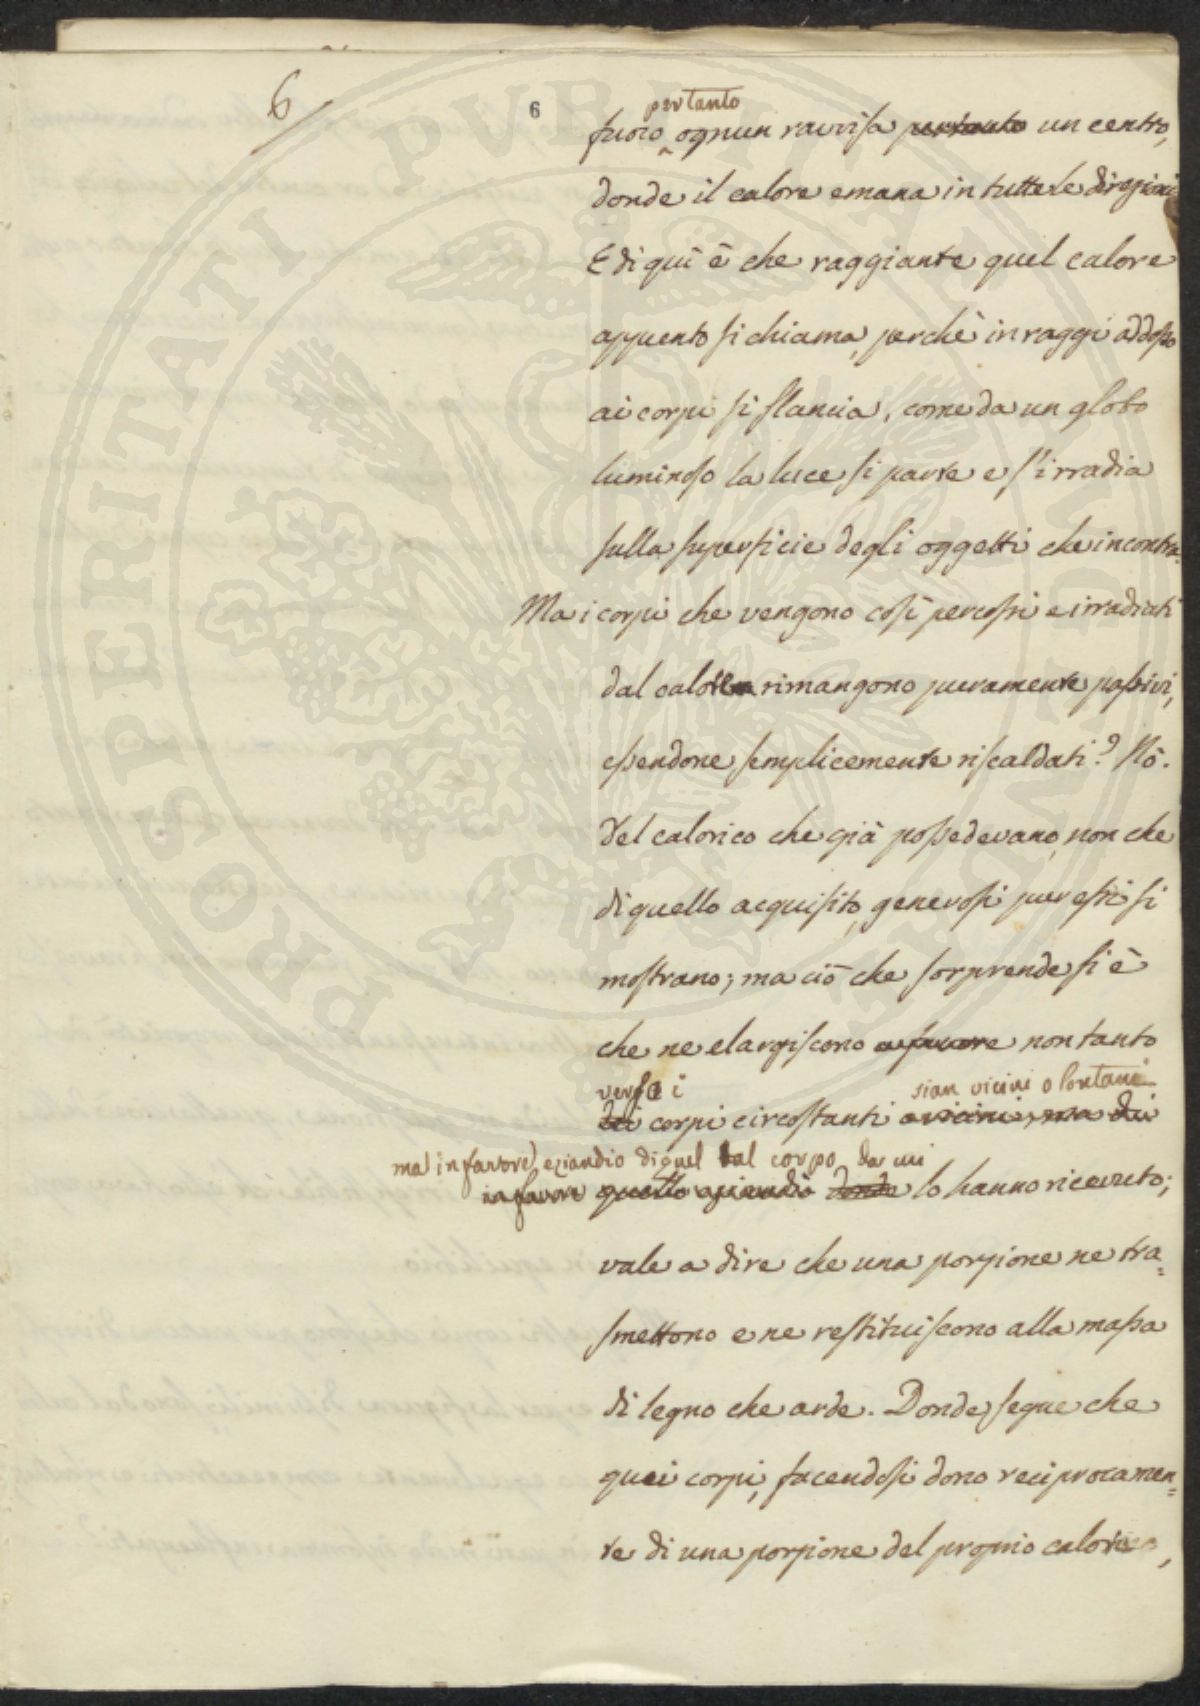 6
6
pertanto
fuoco ognun ravvisa pertanto un centro,
donde il calore emana in tutte le direzioni
E di quì è che raggiante quel calore
appunto si chiama, perchè in raggi addosso
ai corpi si slancia, come da un globo
luminoso la luce si parte e s'irradia
sulla superficie degli oggetti che incontra.
Ma i corpi che vengono così percossi e irradiati
dal calore rimangono puramente passivi,
essendone semplicemente riscaldati? Nò.
Del calorico che già possedevano, non che
di quello acquisito, generosi pur essi si
mostrano; ma ciò che sorprende si è
che ne elargiscono a favore non tanto
verso i sian vicini o lontani
dei corpi circostanti o vicini, ma di
ma in favore eziandio di quel tal corpo da cui
in favore quello eziandio donde lo hanno ricevuto;
vale a dire che una porzione ne tra=
smettono e ne restituiscono alla massa
di legno che arde. Donde segue che
quei corpi, facendosi dono reciprocamen=
te di una porzione del proprio calorico,
PROSPERITATI PUBLICAE